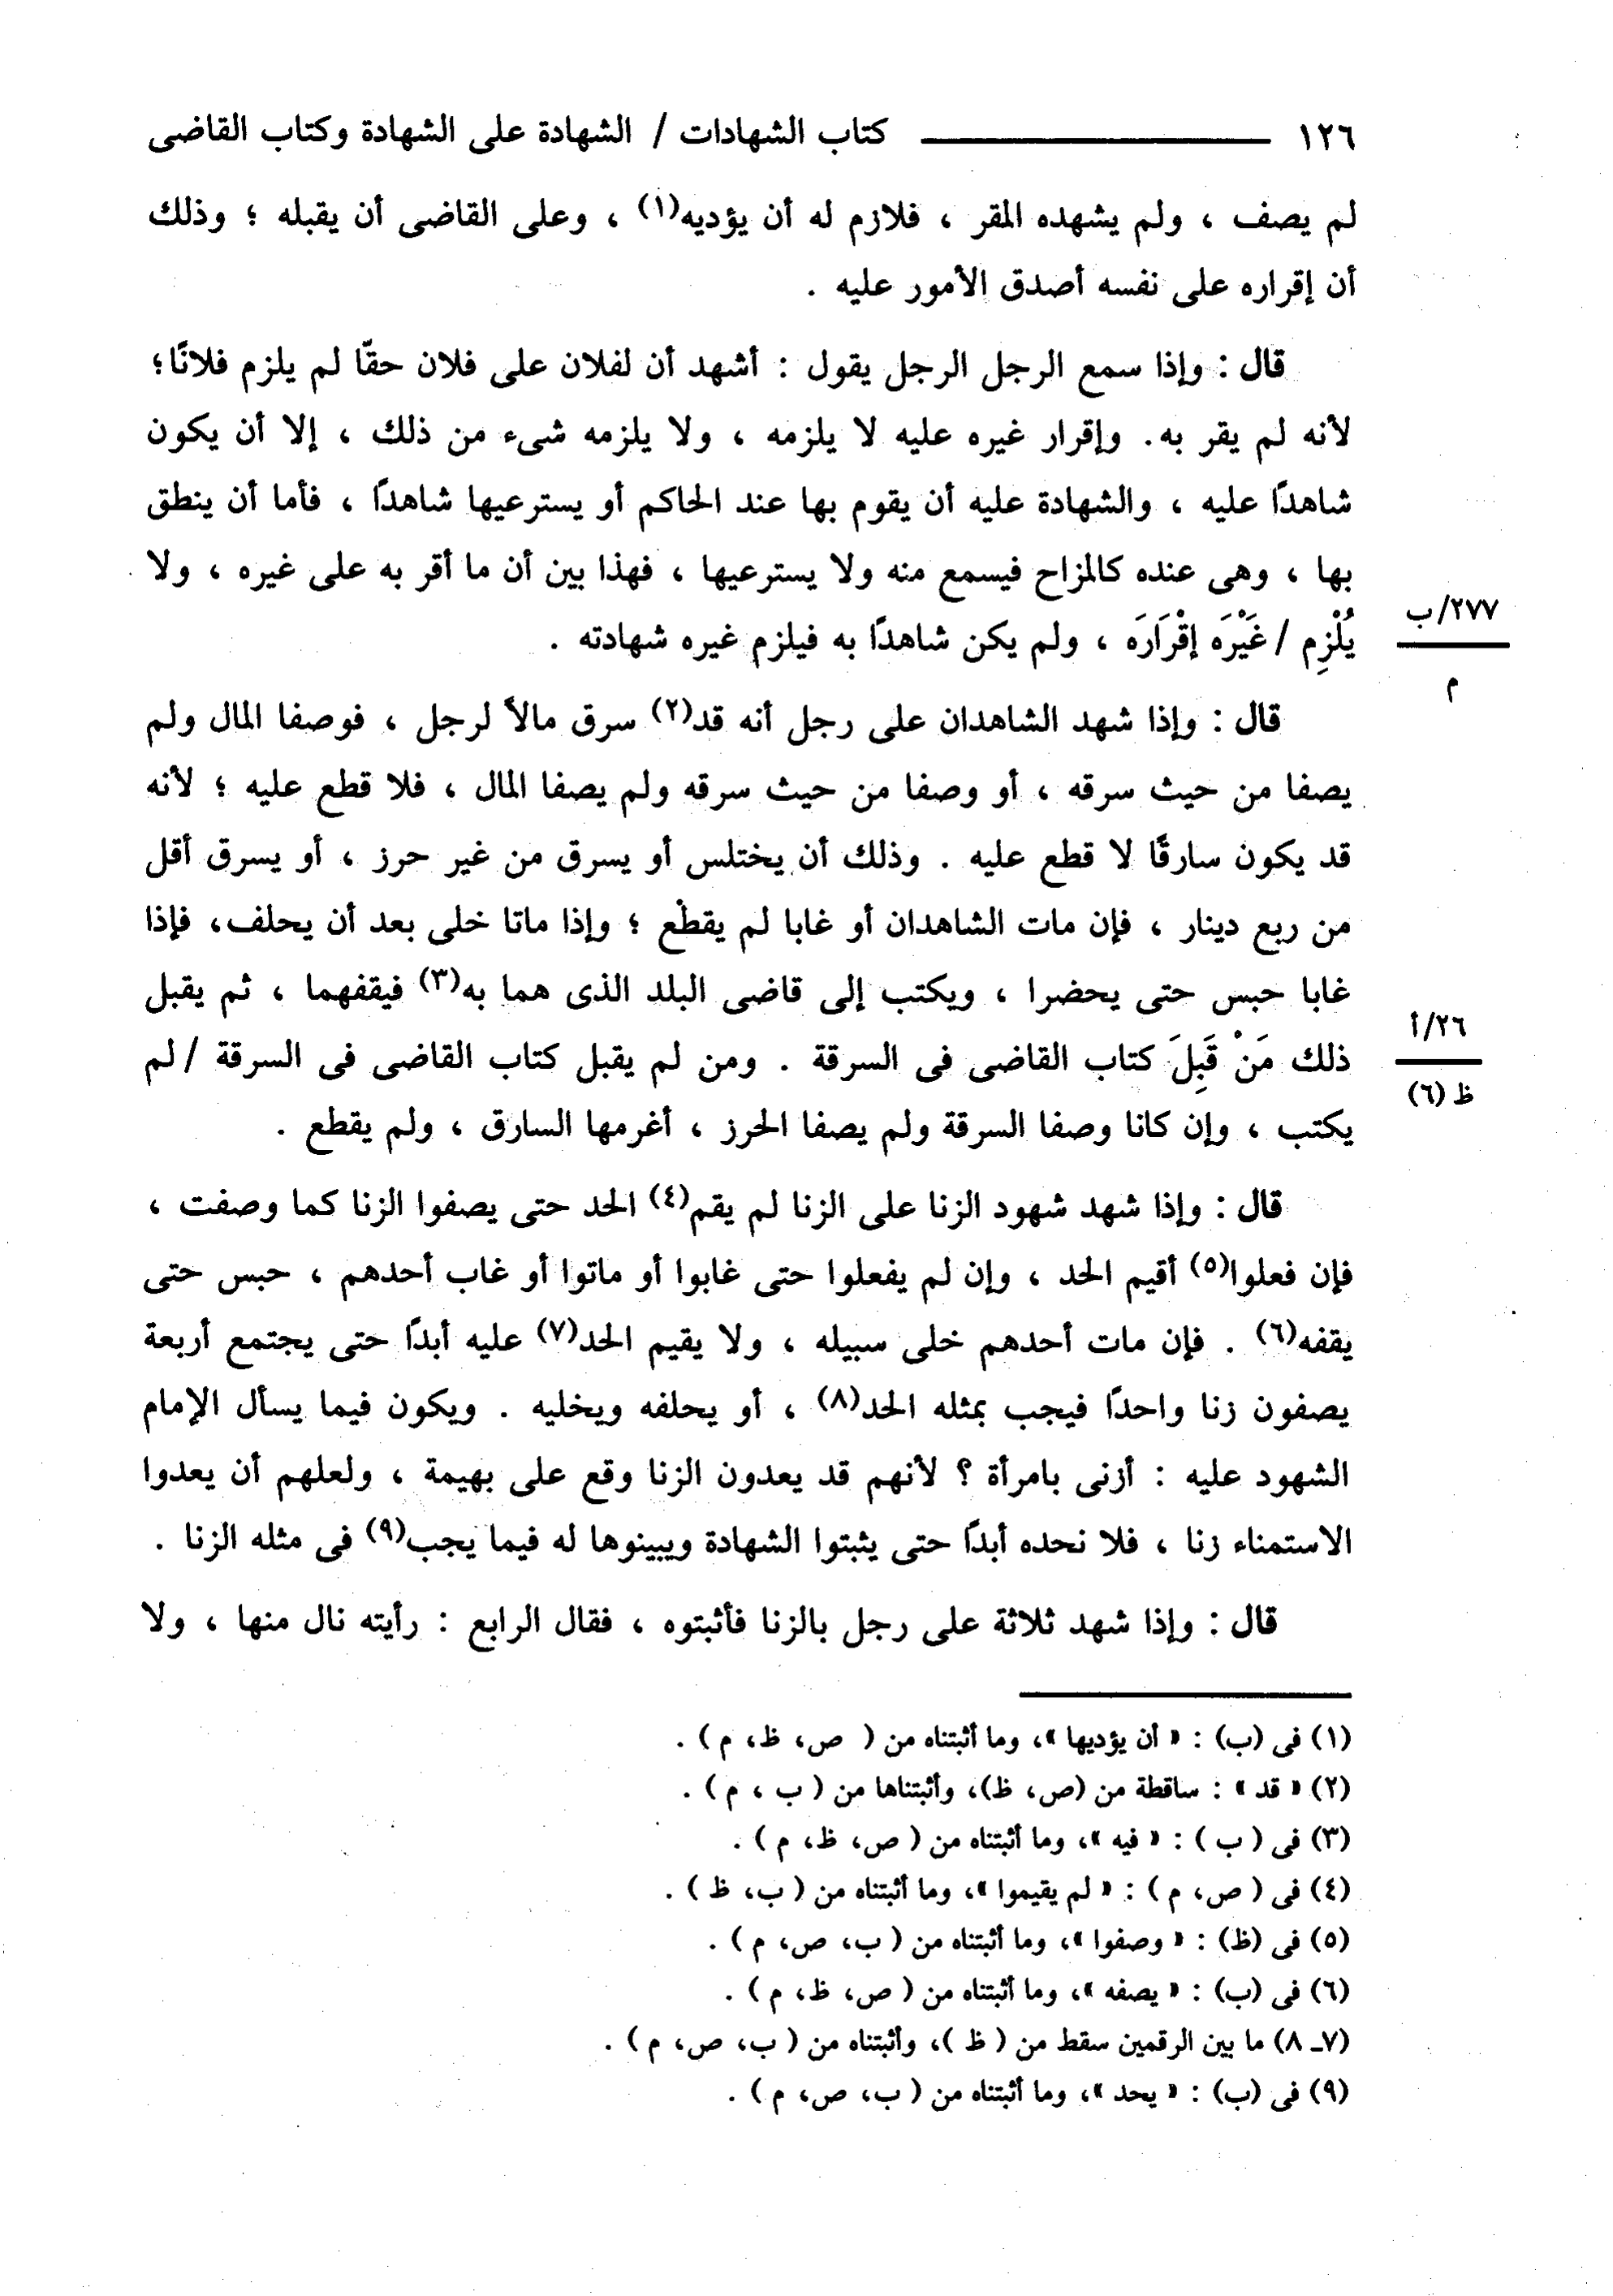 ١٢٦ كتاب الشهادات / الشهادة على الشهادة وكتاب القاضى
لم يصف ، ولم يشهده المقر ، فلازم له أن يؤديه(١) ، وعلى القاضى أن يقبله ؛ وذلك
أن إقراره على نفسه أصدق الأمور عليه .
قال : وإذا سمع الرجل الرجل يقول : أشهد أن لفلان على فلان حقًا لم يلزم فلانًا؛
لأنه لم يقر به. وإقرار غيره عليه لا يلزمه ، ولا يلزمه شىء من ذلك ، إلا أن يكون
شاهدًا عليه ، والشهادة عليه أن يقوم بها عند الحاكم أو يسترعيها شاهدًا ، فأما أن ينطق
بها ، وهى عنده كالمزاح فيسمع منه ولا يسترعيها ، فهذا بين أن ما أقر به على غيره ، ولا
يُلْزِم / غَيْرَه إقْرَارَه ، ولم يكن شاهدًا به فيلزم غيره شهادته .
٢٧٧/ب
م
قال : وإذا شهد الشاهدان على رجل أنه قد(٢) سرق مالاً لرجل ، فوصفا المال ولم
يصفا من حيث سرقه ، أو وصفا من حيث سرقه ولم يصفا المال ، فلا قطع عليه ؛ لأنه
قد يكون سارقًا لا قطع عليه . وذلك أن يختلس أو يسرق من غير حرز ، أو يسرق أقل
من ربع دينار ، فإن مات الشاهدان أو غابا لم يقطْع ؛ وإذا ماتا خلى بعد أن يحلف، فإذا
غابا حبس حتى يحضرا ، ويكتب إلى قاضى البلد الذى هما به(٣) فيقفهما ، ثم يقبل
ذلك مَنْ قَبِلَ كتاب القاضى فى السرقة . ومن لم يقبل كتاب القاضى فى السرقة / لم
٢٦/أ
ظ (٦)
يكتب ، وإن كانا وصفا السرقة ولم يصفا الحرز ، أغرمها السارق ، ولم يقطع .
قال : وإذا شهد شهود الزنا على الزنا لم يقم(٤) الحد حتى يصفوا الزنا كما وصفت ،
فإن فعلوا(٥) أقيم الحد ، وإن لم يفعلوا حتى غابوا أو ماتوا أو غاب أحدهم ، حبس حتى
يقفه(٦) . فإن مات أحدهم خلى سبيله ، ولا يقيم الحد(٧) عليه أبدًا حتى يجتمع أربعة
يصفون زنا واحدًا فيجب بمثله الحد(٨) ، أو يحلفه ويخليه . ويكون فيما يسأل الإمام
الشهود عليه : أزنى بامرأة ؟ لأنهم قد يعدون الزنا وقع على بهيمة ، ولعلهم أن يعدوا
الاستمناء زنا ، فلا نحده أبدًا حتى يثبتوا الشهادة ويبينوها له فيما يجب(٩) فى مثله الزنا .
قال : وإذا شهد ثلاثة على رجل بالزنا فأثبتوه ، فقال الرابع : رأيته نال منها ، ولا
(١) فى (ب) : « أن يؤديها »، وما أثبتناه من ( ص، ظ، م ) .
(٢) « قد » : ساقطة من (ص، ظ)، وأثبتناها من ( ب ، م ) .
(٣) فى ( ب ) : « فيه »، وما أثبتناه من ( ص، ظ، م ) .
(٤) فى ( ص، م ) : « لم يقيموا »، وما أثبتناه من ( ب، ظ ) .
(٥) فى (ظ) : « وصفوا »، وما أثبتناه من ( ب، ص، م ) .
(٦) فى (ب) : « يصفه »، وما أثبتناه من ( ص، ظ، م ) .
(٧ـ ٨) ما بين الرقمين سقط من ( ظ )، وأثبتناه من ( ب، ص، م ) .
(٩) فى (ب) : « يحد »، وما أثبتناه من ( ب، ص، م ) .